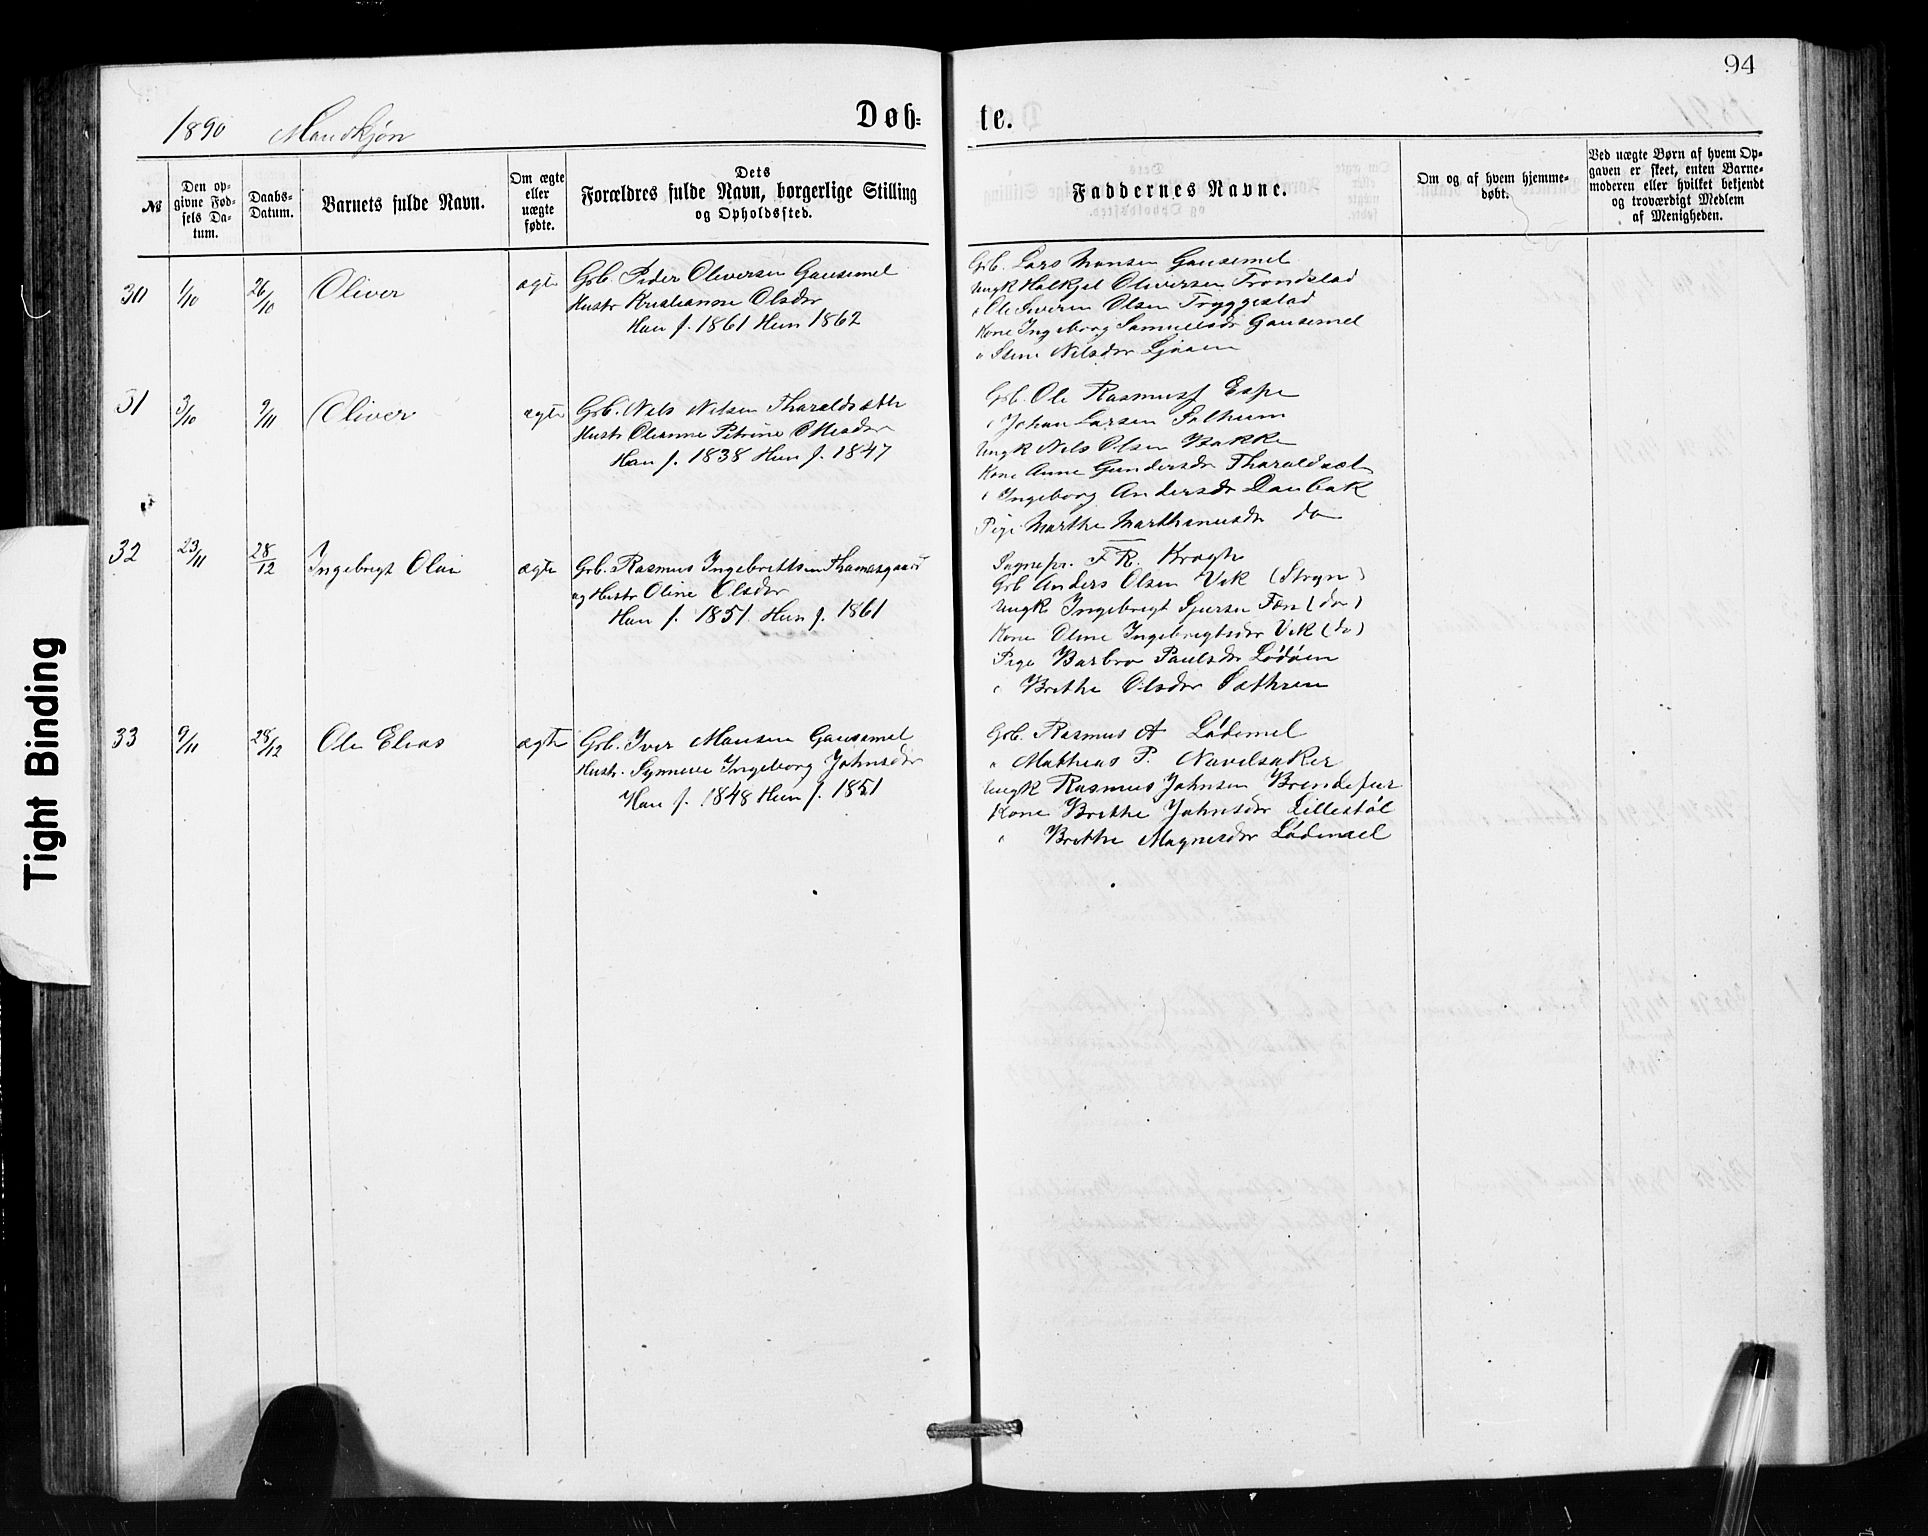 94
1890 Mandkjøn
Døb-
te.
№
Den op-
givne Fød-
sels Da-
tum.
Daabs-
Datum.
Barnets fulde Navn.
Om ægte
eller
uægte
fødte.
Dets
Forældres fulde Navn, borgerlige Stilling
og Opholdssted.
Faddernes Navne.
Om og af hvem hjemme-
døbt.
Ved uægte Børn af hvem Op-
gaven er skeet, enten Barne-
moderen eller hvilket bekjendt
og troværdigt Medlem
af Menigheden.
30 1/10 26/10 Oliver ægte
Grb. Peder Oliversen Gausemel
Hustr Kristianne Olsdr
Han f. 1861 Hun 1862
Grb. Lars Monsen Gausemel
Ungk Halkjel Oliversen Trondstad
Ole Severin Olsen Tryggestad
Kone Ingeborg Samuelsdr Gausemel
" Stine Nilsdr
31 3/10 9/11 Oliver ægte
Grb. Nils Nilsen Tharaldsæth
Hustr Olianne Petrine Ottesdr
Han f. 1838 Hun f. 1847
Grb. Ole Rasmuss Espe
" Johan Larsen Solheim
Ungk Nils Olsen Bakke
Kone Anne Gundersdr Tharaldsæt
" Ingeborg Andersdr Raubak
Pige Marthe Marthinusdr do
32 23/11 28/12 Ingebrigt Olai ægte
Grb. Rasmus Ingebrittsen Thomasgaard
og Hustr Oline Olsdr
Han f. 1851. Hun f. 1861
Sognepr. F R. Krogh
Grb Anders Olsen Vik (Stryn)
Ungk Ingebrigt Sjursen (do)
Kone Oline Ingebrigtsdr Vik (do)
Pige Barbro Paulsdr Lødøen
" Brithe Olsdr Sæthren
33 9/11 28/12 Ole Elias ægte
Grb. Iver Monsen Gausemel
Hustr. Synneve Ingeborg Johnsdr
Han f. 1848 Hun f. 1851
Grb. Rasmus A Lødemel
" Mathias P. Navelsaker
Ungk Rasmus Johnsen Brendefur
Kone Brithe Johnsdr Lillestøl
" Brithe Magnesdr Lødemel
Tight Binding